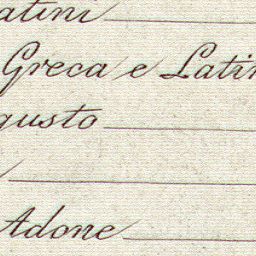 atini
Greca e Latin
gusto
Adone